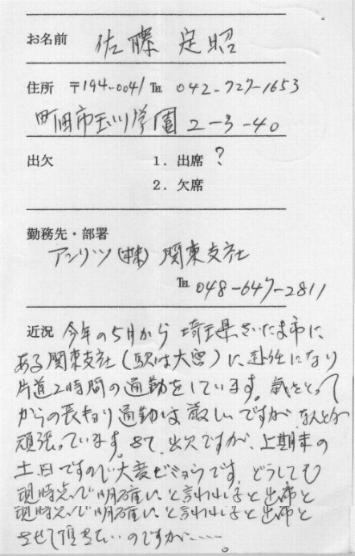 お名前 佐藤 定昭
住所 〒194-0041 ℡ 042-727-1653
町田市玉川学園 2-3-40
出欠 1. 出席 ?
2. 欠席
勤務先・部署
アンリツ(株) 関東支社
℡ 048-647-2811
近況 今年の5月から 埼玉県さいたま市に
ある関東支社(駅は大宮)に赴任になり
片道2時間の通勤をしています。歳をとって
からの長距離通勤は厳しいですがなんとか
頑張っています。さて、出欠ですが、上期末の
土日ですので大変ビミョウです。どうしても
現時点で明確にと言われると出席と
現時点で明確にと言われると出席と
させて頂きたいのですが……